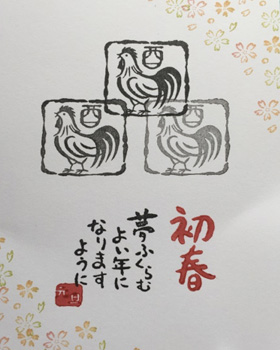 酉
酉
酉
初春
夢ふくらむ
よい年に
なります
ように